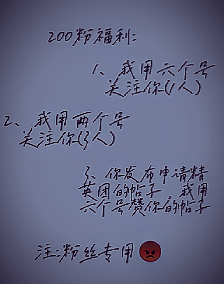 200粉福利:
1、我用六个号
关注你(1人)
2、我用两个号
关注你(3人)
3、你发布申请精
英团的帖子 我用
六个号赞你的帖子
注:粉丝专用